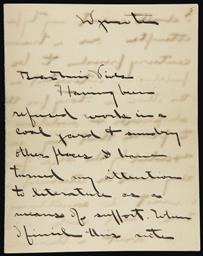 Dear Miss
Having been
refused work in a
coal yard & sundry
other places I have
turned my attention
to literature as a
means of support. When
I finish this note